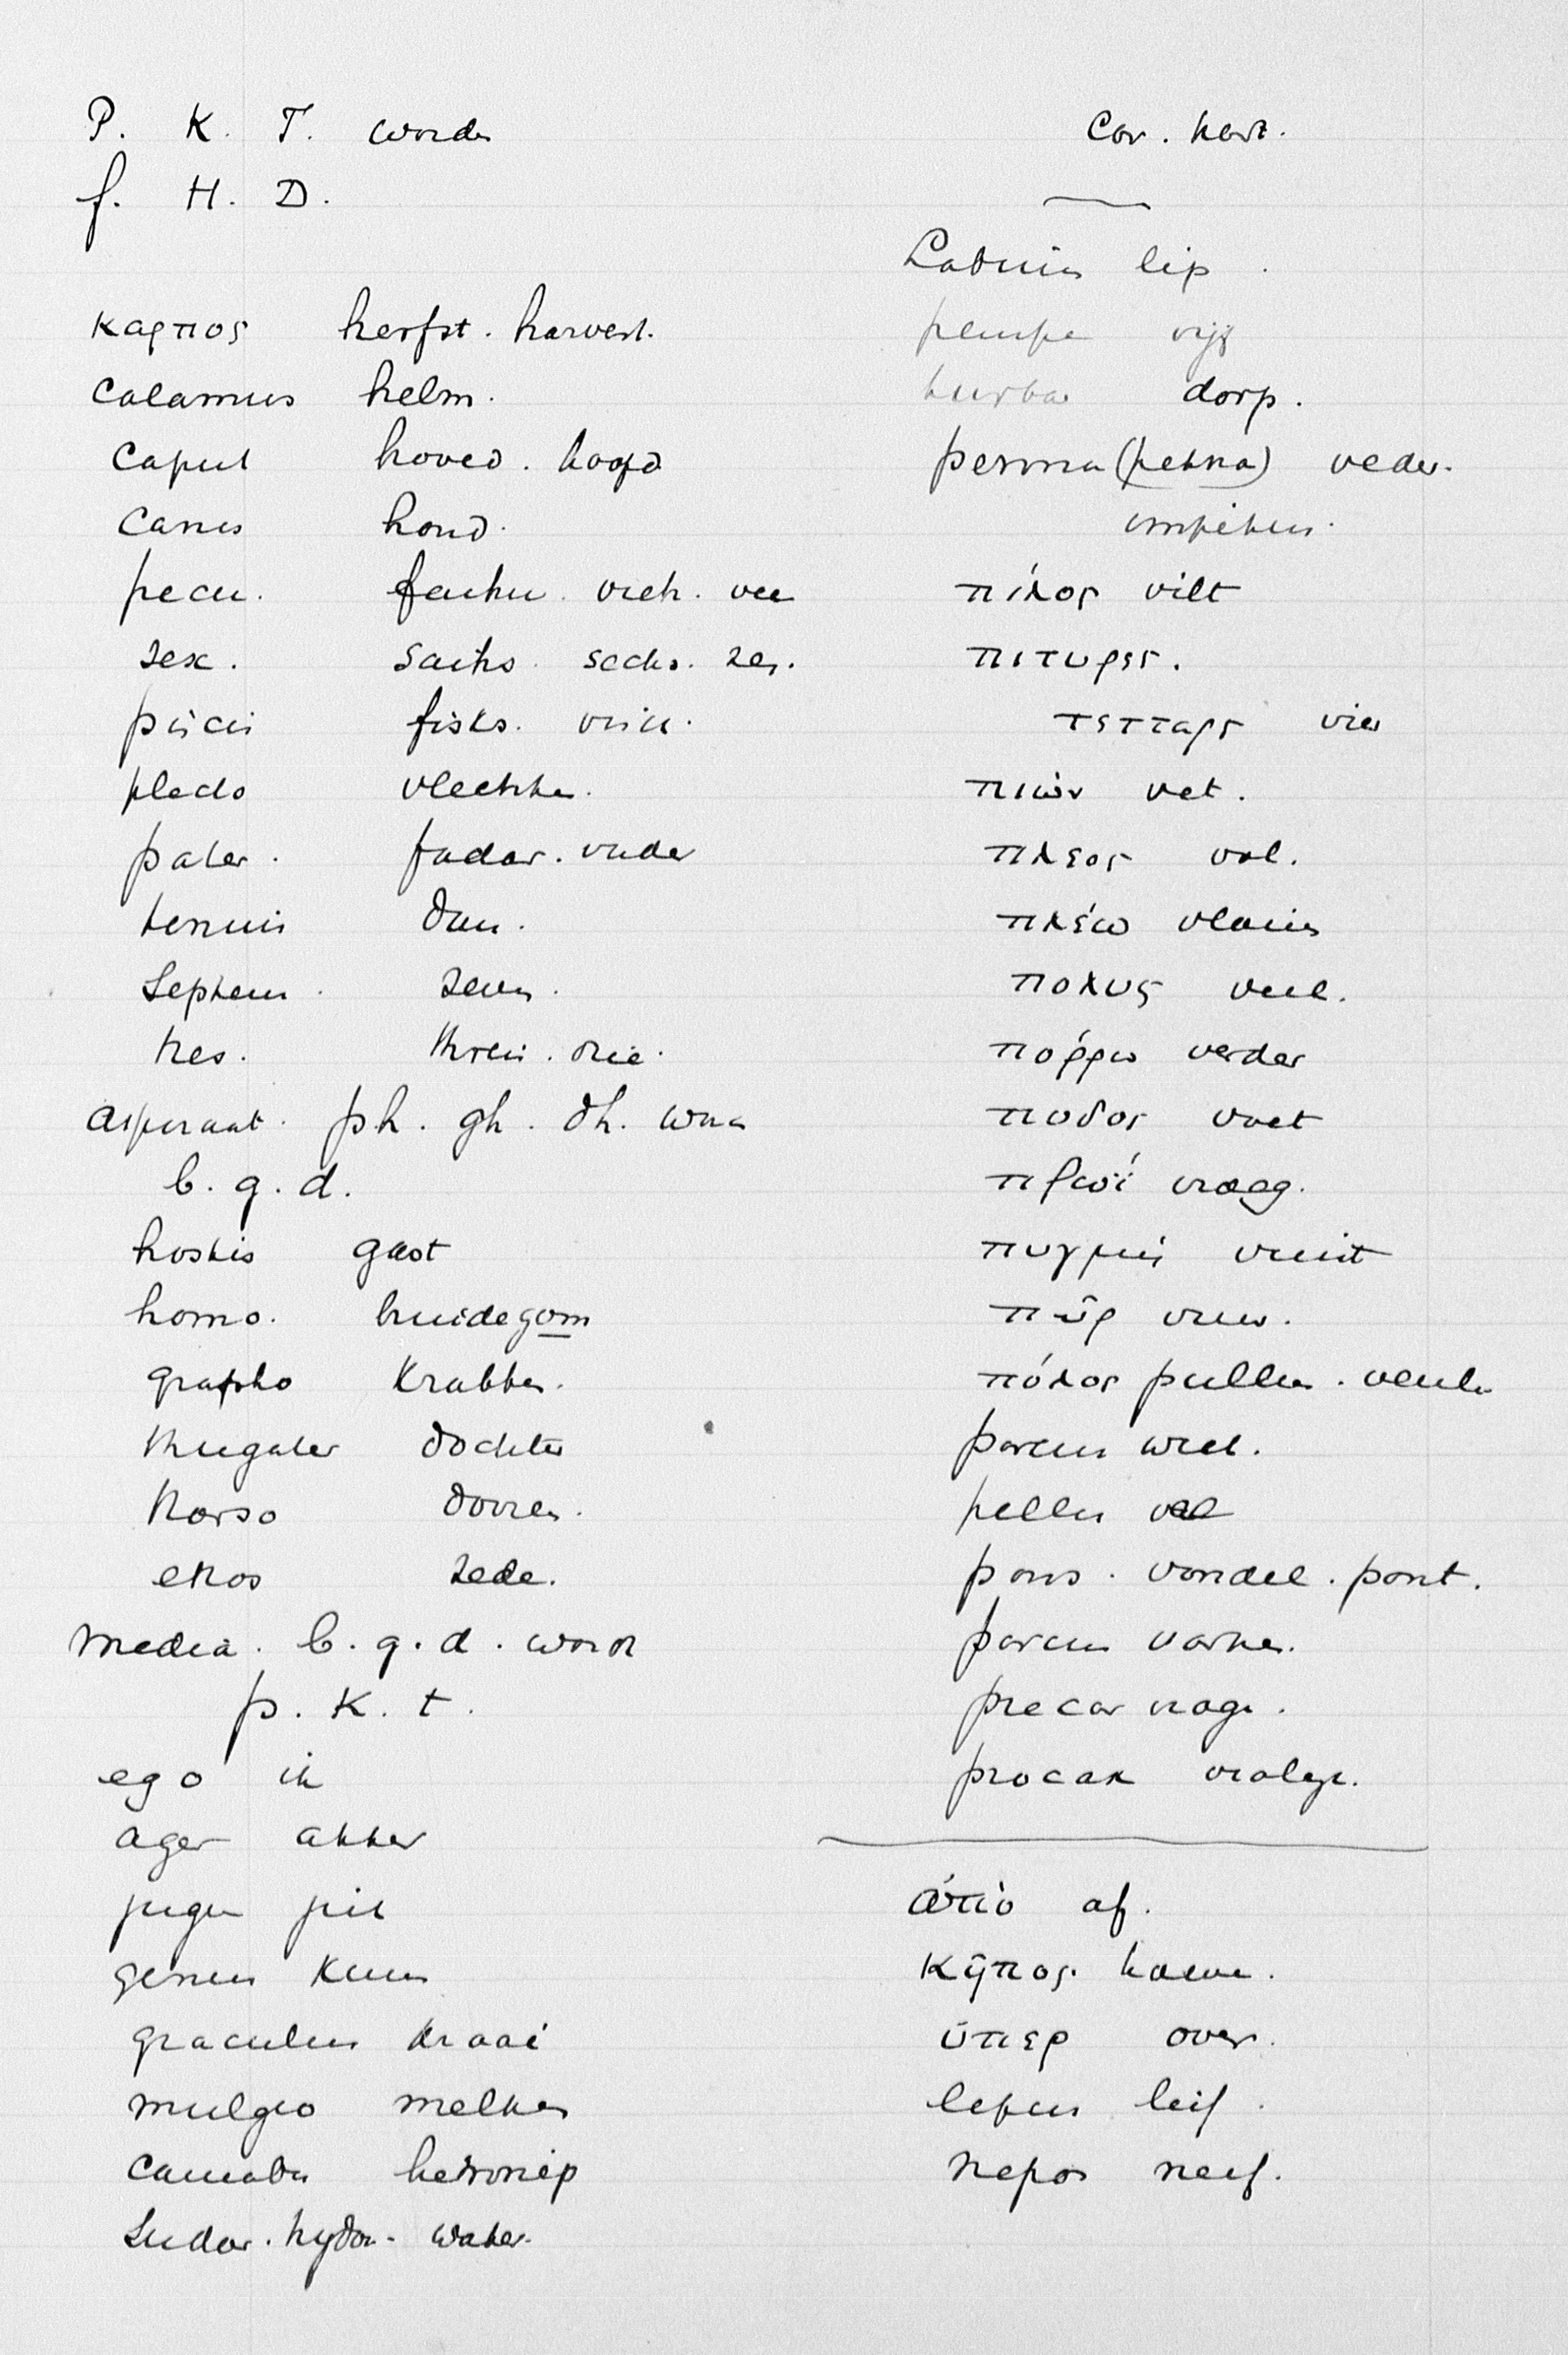 P. K. T. worden
f. H. D.
καρπος herfst. harvest.
calamus helm.
caput hoved. hoofd
canis hond.
pecu. faihu. vieh. vee
sex. saihs. sechs. zes.
piscis fisks. visch.
plecto vlechten.
pater. fadar. vader
tenuis dun.
septem. zeven.
tres. threis. drie.
aspiraat. ph. gh. dh.word
b. g. d.
hostis gast
homo. bruidegom
grapho krabben.
thugater dochter
tharso dorren.
ethos zede.
media. b. g. d. wordt
p. k. t.
ego ik
ager akker
genus kunne
graculus kraai
mulgeo melken
cannabis hennep
sudor. hydor. water.
cor. hart.
Labium lip.
pempe vijf
turba dorp.
penna (petna) veder.
impetus.
πίλος vilt
πιτυρες.
τετταρες vier
πιών vet.
πλεος vol.
πλέω vlouien
πολυς veel.
πόρρω verder
ποδος voet
πρωί vroeg.
πυγμή vuist
πῦρ vuur.
πόλος pullus. veulen
porcus
pellis vel
pons. vondel. pont.
porcus varken.
precor vragen.
procax
ἀπό af.
κῆπος. hoeve.
ὑπερ over.
lepus
nepos neef.